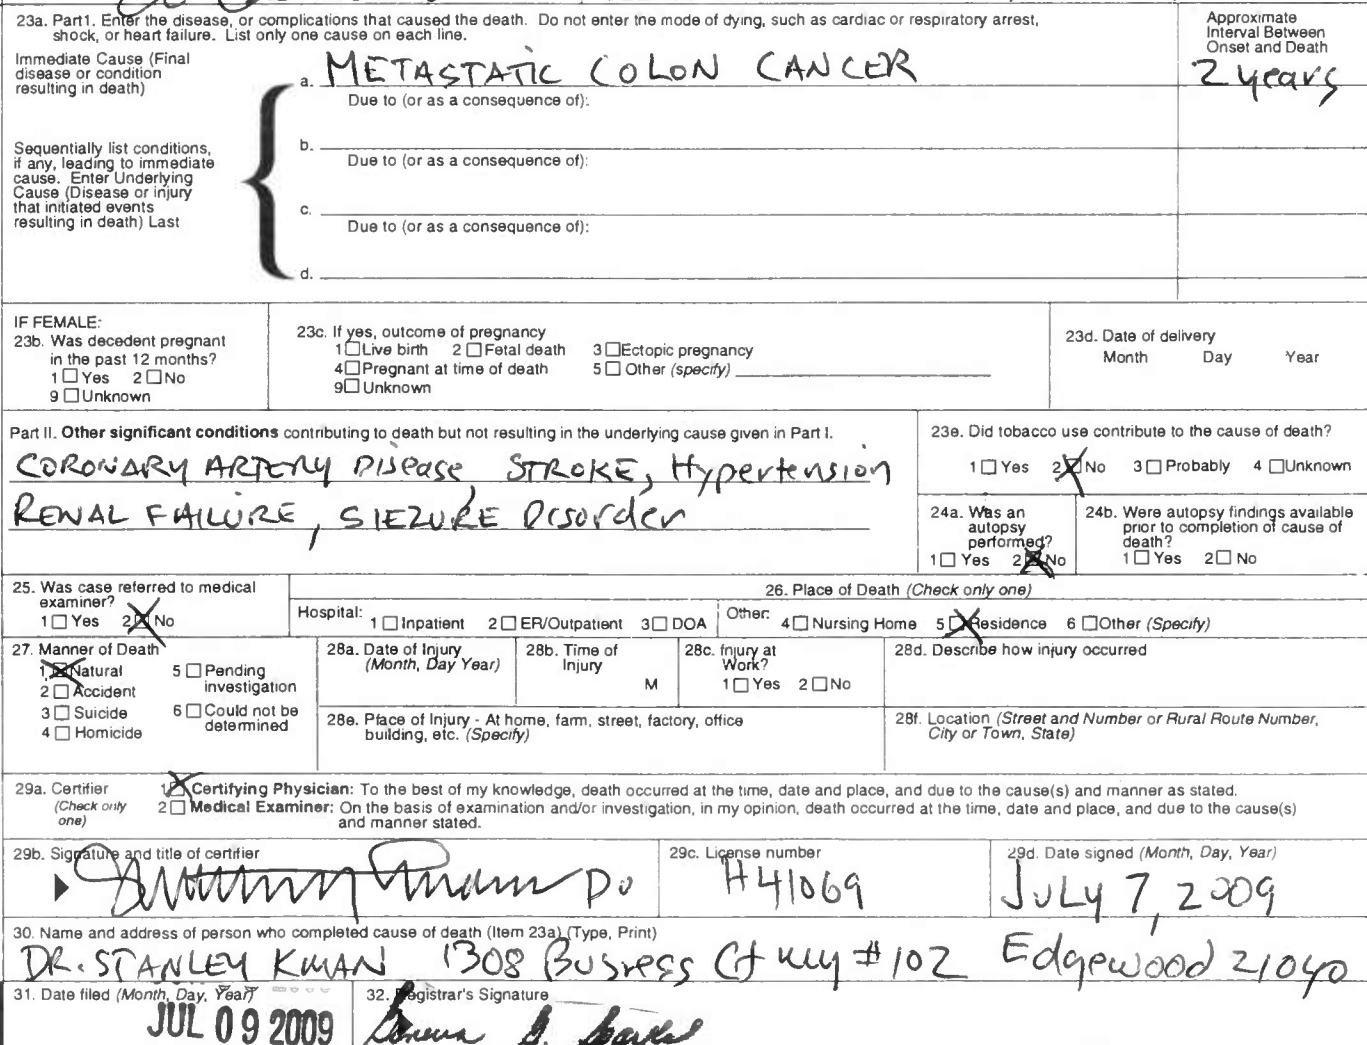 23a. Part1. Enter the disease, or complications that caused the death. Do not enter the mode of dying, such as cardiac or respiratory arrest,
shock, or heart failure. List only one cause on each line.
Approximate
Interval Between
Onset and Death
Immediate Cause (Final
disease or condition
resulting in death)
a. METASTATIC COLON CANCER 2 years
Due to (or as a consequence of):
Sequentially list conditions,
if any, leading to immediate
cause. Enter Underlying
Cause (Disease or injury
that initiated events
resulting in death) Last
b.
Due to (or as a consequence of):
c.
Due to (or as a consequence of):
d.
IF FEMALE:
23b. Was decedent pregnant
in the past 12 months?
1 ☐ Yes 2 ☐ No
9 ☐ Unknown
23c. If yes, outcome of pregnancy
1 ☐ Live birth 2 ☐ Fetal death 3 ☐ Ectopic pregnancy
4 ☐ Pregnant at time of death 5 ☐ Other (specify)
9 ☐ Unknown
23d. Date of delivery
Month Day Year
Part II. Other significant conditions contributing to death but not resulting in the underlying cause given in Part I.
CORONARY ARTERY Disease, STROKE, Hypertension
RENAL FAILURE, SIEZURE Disorder
23e. Did tobacco use contribute to the cause of death?
1 ☐ Yes 2 ☒ No 3 ☐ Probably 4 ☐ Unknown
24a. Was an
autopsy
performed?
1 ☐ Yes 2 ☒ No
24b. Were autopsy findings available
prior to completion of cause of
death?
1 ☐ Yes 2 ☐ No
25. Was case referred to medical
examiner?
1 ☐ Yes 2 ☒ No
26. Place of Death (Check only one)
Hospital: 1 ☐ Inpatient 2 ☐ ER/Outpatient 3 ☐ DOA Other: 4 ☐ Nursing Home 5 ☒ Residence 6 ☐ Other (Specify)
27. Manner of Death
1 ☒ Natural 5 ☐ Pending
investigation
2 ☐ Accident
3 ☐ Suicide 6 ☐ Could not be
determined
4 ☐ Homicide
28a. Date of Injury
(Month, Day Year)
28b. Time of
Injury
M
28c. Injury at
Work?
1 ☐ Yes 2 ☐ No
28d. Describe how injury occurred
28e. Place of Injury - At home, farm, street, factory, office
building, etc. (Specify)
28f. Location (Street and Number or Rural Route Number,
City or Town, State)
29a. Certifier
(Check only
one)
1 ☒ Certifying Physician: To the best of my knowledge, death occurred at the time, date and place, and due to the cause(s) and manner as stated.
2 ☐ Medical Examiner: On the basis of examination and/or investigation, in my opinion, death occurred at the time, date and place, and due to the cause(s)
and manner stated.
29b. Signature and title of certifier
DO
29c. License number
H41069
29d. Date signed (Month, Day, Year)
JULY 7, 2009
30. Name and address of person who completed cause of death (Item 23a) (Type, Print)
DR. STANLEY 1308 #102 Edgewood 21040
31. Date filed (Month, Day, Year)
JUL 09 2009
32. Registrar's Signature